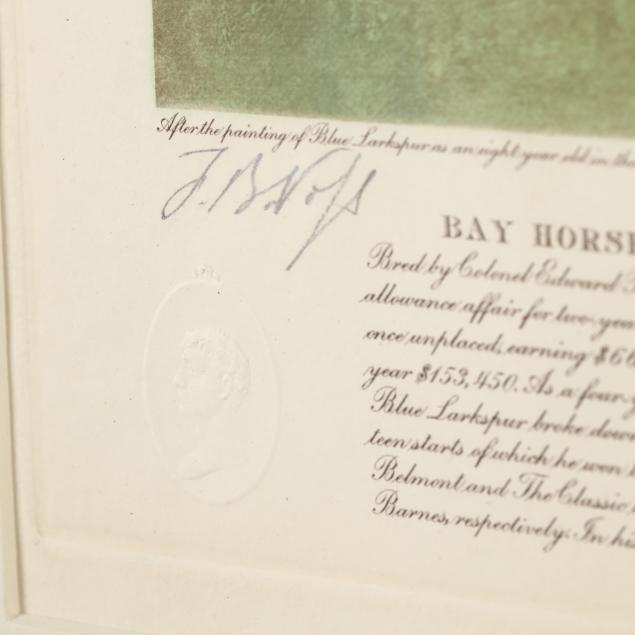 After the painting of Blue Larkspur as an eight year old in the
F. B. Voss
BAY HORSE
Bred by Colonel Edward
allowance affair for two-year
once unplaced, earning $66
year $153,450. As a four-y
Blue Larkspur broke down
teen starts of which he won
Belmont and The Classic
Barnes, respectively. In his